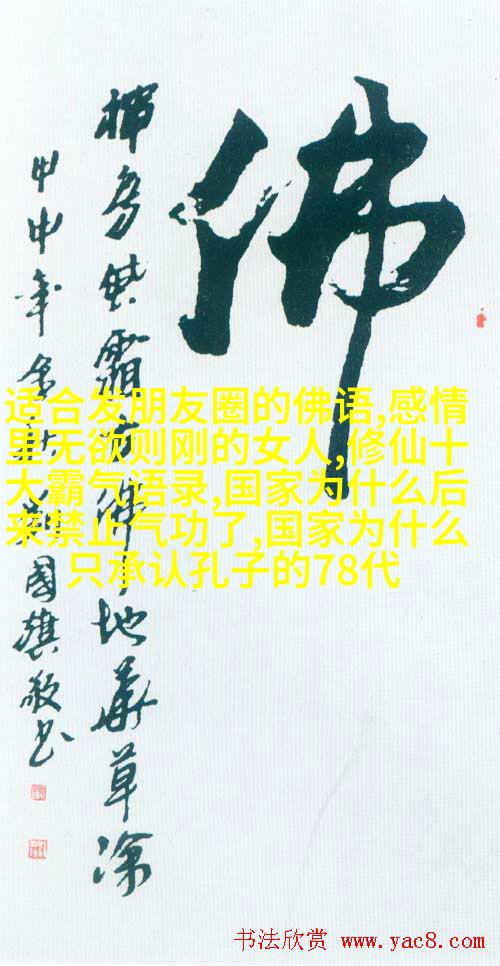 佛
霜 佛地 草
甲申年 國旗敬书
适合发朋友圈的佛语,感情
里无欲则刚的女人,修仙十
大霸气语录,国家为什么后
来禁止气功了,国家为什么
只承认孔子的78代
书法欣赏 www.yac8.com